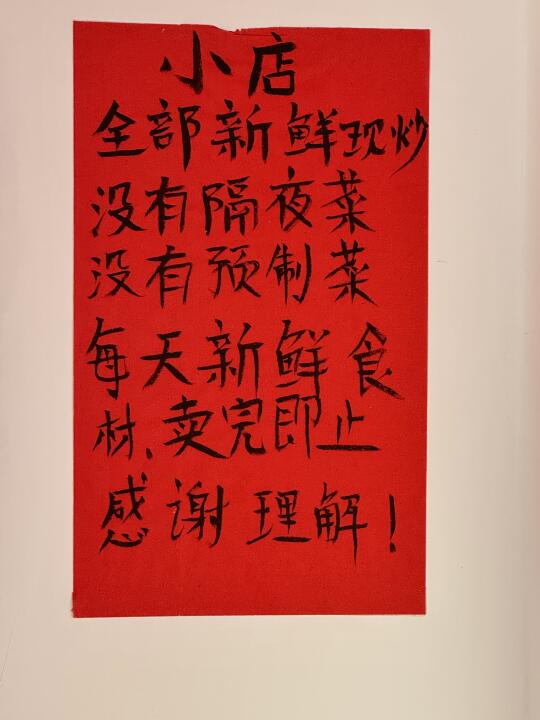 小店
全部新鲜现炒
没有隔夜菜
没有预制菜
每天新鲜食
材、卖完即止
感谢理解！